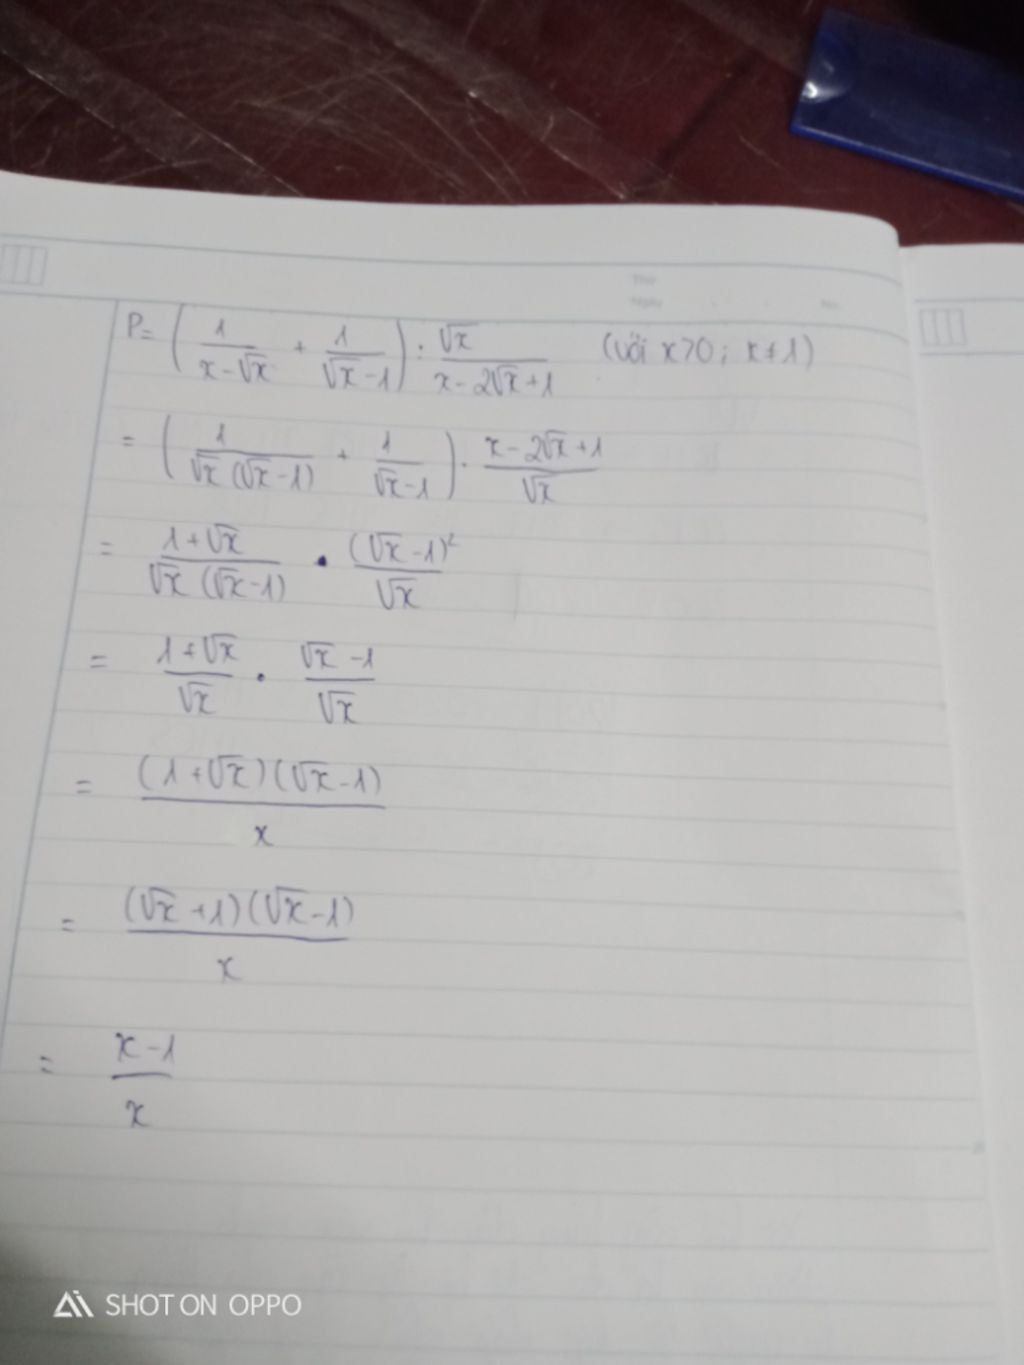 Thứ
Ngày No.
P= (1/(x-√x) + 1/(√x-1)) : √x/(x-2√x+1) (với x>0; x≠1)
= (1/(√x(√x-1)) + 1/(√x-1)) . (x-2√x+1)/√x
= (1+√x)/(√x(√x-1)) . (√x-1)²/√x
= (1+√x)/√x . (√x-1)/√x
= (1+√x)(√x-1)/x
= (√x+1)(√x-1)/x
= (x-1)/x
SHOT ON OPPO